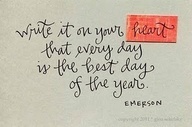 Write it on your heart
that every day
is the best day
of the year.
EMERSON